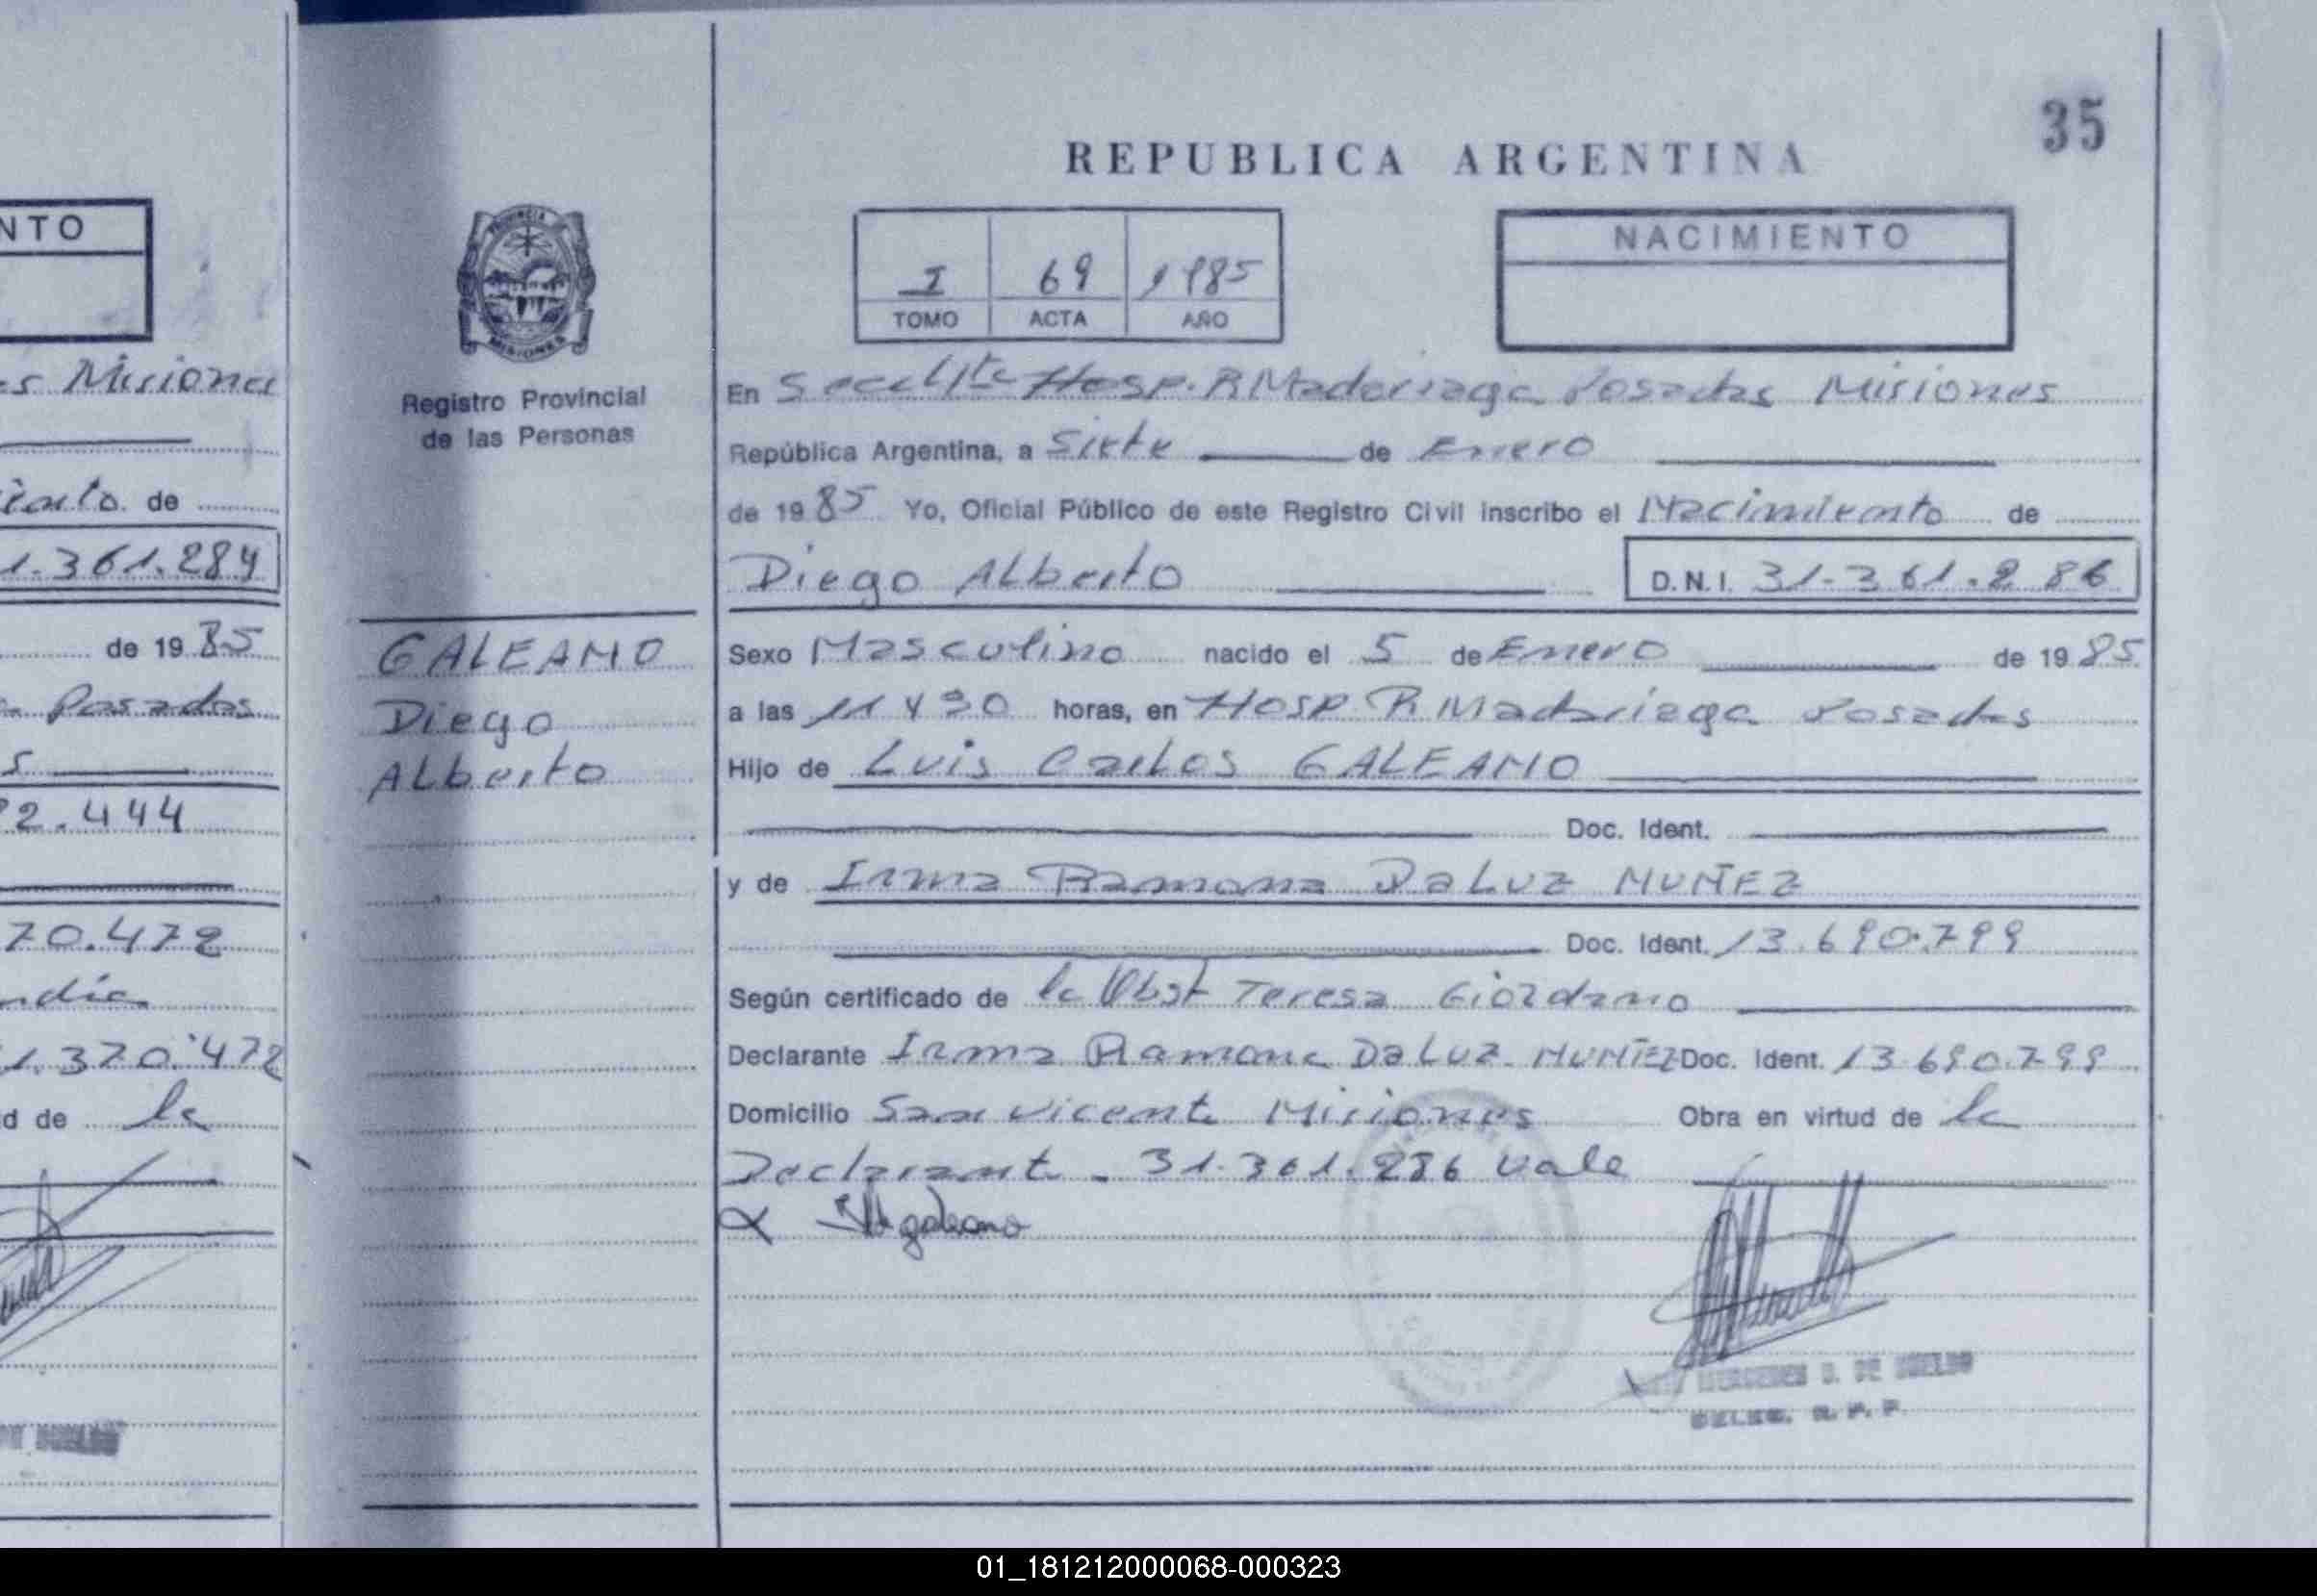 35
REPUBLICA ARGENTINA
NTO
NACIMIENTO
I 69 1985
TOMO ACTA AÑO
PROVINCIA
MISIONES
Registro Provincial
de las Personas
s Misiones
de
1.361.284
de 1985
Posadas
2.444
70.472
1.370.472
d de la
GALEANO
Diego
Alberto
En Secc 4ta Hosp. R Madariaga Posadas Misiones
República Argentina, a Siete de Enero
de 1985 Yo, Oficial Público de este Registro Civil inscribo el Nacimiento de
Diego Alberto D.N.I. 31.361.286
Sexo Masculino nacido el 5 de Enero de 1985
a las 11 y 30 horas, en Hosp R Madariaga Posadas
Hijo de Luis Carlos GALEANO
Doc. Ident.
y de Irma Ramona Da Luz NUÑEZ
Doc. Ident. 13.690.799
Según certificado de la Obst Teresa Giordano
Declarante Irma Ramona Da Luz NUÑEZ Doc. Ident. 13.690.799
Domicilio San Vicente Misiones Obra en virtud de la
Declarante - 31.361.286 vale
galeano
MERCEDES
DELEG. R. P. P.
01_181212000068-000323